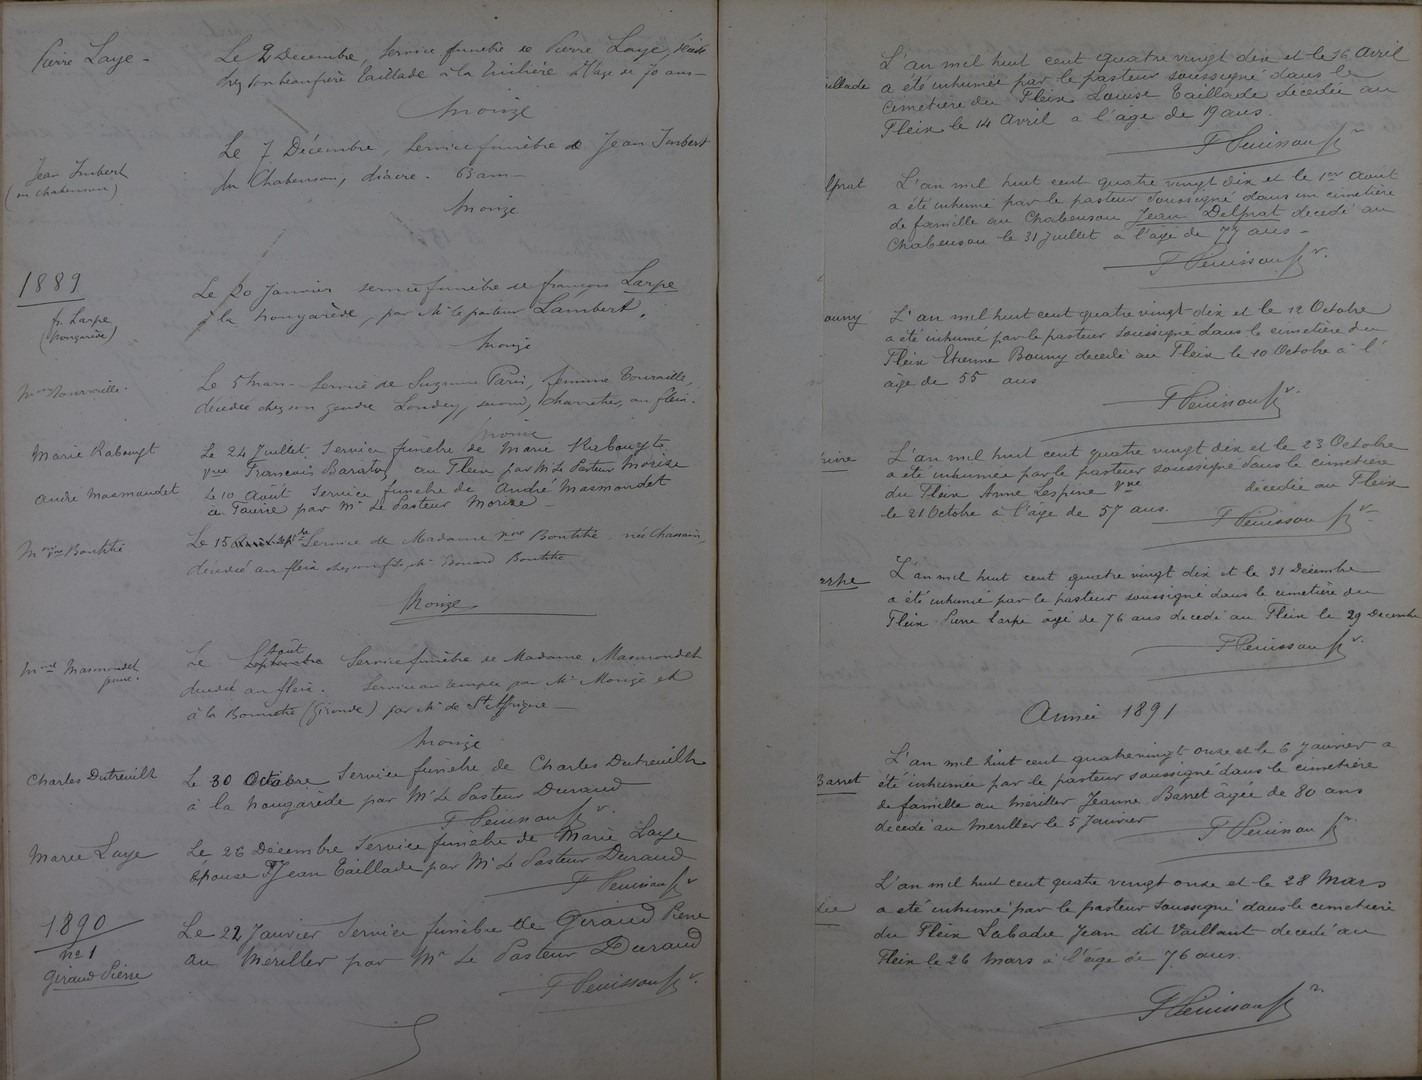 Pierre Laye -
Le 2 Décembre, Service funèbre de Pierre Laye, décédé
chez son beau frère Taillade à la Tuilière à l'âge de 70 ans -
Morize
Jean Imbert
(in Chabenson)
Le 7 Décembre, Service funèbre de Jean Imbert
du Chabenson, diacre. 63 ans -
Morize
1889
fr. Larpe
(Nougarède)
Le 20 Janvier service funèbre de françois Larpe
à la Nougarède, par Mr le pasteur Lambert.
Morize
Le 5 Mars - Service de Suzanne Paris, femme Tourville,
décédée chez son gendre Loudey, charretier, au fleix.
Morize
Marie Rabouyt
Le 24 Juillet Service funèbre de Marie Rabouyt
vve François Baratou au Fleix par Mr Le Pasteur Morize
André Masmondet
Le 10 Août Service funèbre de André Masmondet
par Mr Le Pasteur Morize -
Mme vve Bontithé
Le 15 Service de Madame vve Bontithé née Chassain,
décédée au fleix chez son fils Mr Edouard Bontithé
Morize
Mme Masmondet
Le Août Septembre Service funèbre de Madame Masmondet
décédée au fleix. Service au temple par Mr Morize et
à la Bonnette (Gironde) par Mr de St Affrique -
Morize
Charles Dutreuilh
Le 30 Octobre Service funèbre de Charles Dutreuilh
à la Nougarède par Mr Le Pasteur Durand
Marie Laye
Le 26 Décembre Service funèbre de Marie Laye
épouse Jean Taillade par Mr Le Pasteur Durand
1890
No 1
Giraud Pierre
Le 22 Janvier Service funèbre de Giraud Pierre
au Meriller par Mr Le Pasteur Durand
illade
L'an mil huit cent quatre vingt dix et le 16 Avril
a été inhumée par le pasteur soussigné dans le
cimetière du Fleix Louise Taillade décédée au
Fleix le 14 Avril à l'âge de 19 ans.
lprat
L'an mil huit cent quatre vingt dix et le 1er Août
a été inhumé par le pasteur soussigné dans un cimetière
de famille au Chabensou Jean Delprat décédé au
Chabensou le 31 Juillet à l'âge de 77 ans -
ouny
L'an mil huit cent quatre vingt dix et le 12 Octobre
a été inhumé par le pasteur soussigné dans le cimetière du
Fleix Etienne Bouny décédé au Fleix le 10 Octobre à l'
âge de 55 ans
L'an mil huit cent quatre vingt dix et le 23 Octobre
a été inhumée par le pasteur soussigné dans le cimetière
du Fleix Anne Lespine vve décédée au Fleix
le 21 Octobre à l'âge de 57 ans.
arpe
L'an mil huit cent quatre vingt dix et le 31 Décembre
a été inhumé par le pasteur soussigné dans le cimetière du
Fleix Pierre Larpe âgé de 76 ans décédé au Fleix le 29 Décembre
Année 1891
Barret
L'an mil huit cent quatrevingt onze et le 6 Janvier a
été inhumée par le pasteur soussigné dans le cimetière
de famille au Meriller Jeanne Barret âgée de 80 ans
decedé au Meriller le 5 Janvier
die
L'an mil huit cent quatre vingt onze et le 28 Mars
a été inhumé par le pasteur soussigné dans le cimetière
du Fleix Labadie Jean dit Vaillant decedé au
Fleix le 26 Mars à l'âge de 76 ans.